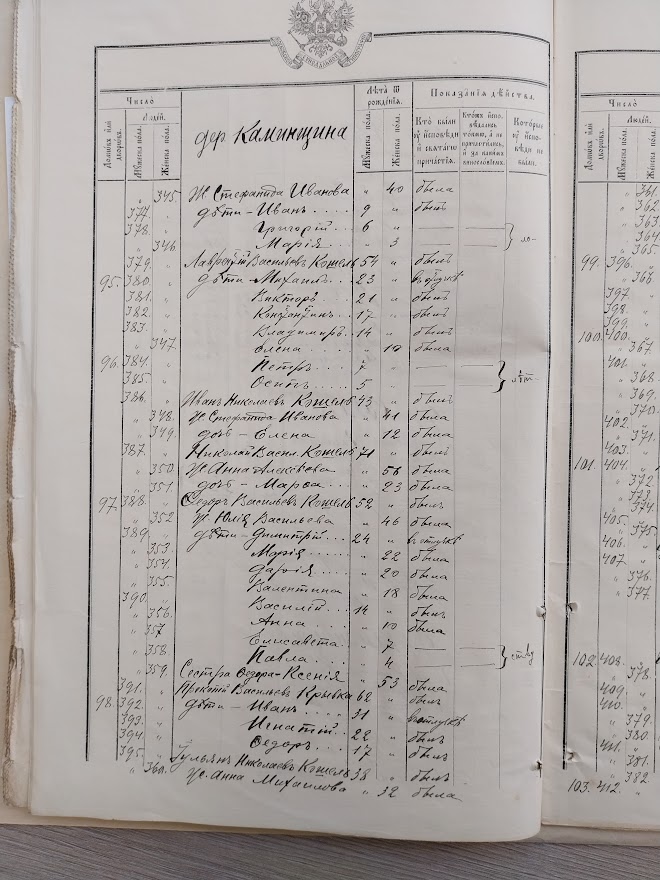 Число
Домѡвъ или дворѡвъ.
Людей.
Мꙋжеска пола.
Женска пола.
дер. Каминщина
Лѣта ѿ рожденїѧ.
Мꙋжеска пола.
Женска пола.
Показанїѧ дѣйства.
Кто были ᲂу исповѣди и свѧтагѡ причастїѧ.
Которые ᲂу исповѣди не были.
" 345. Ж Стефанида Иванова " 40 была
377. " дѣти – Иванъ 9 " былъ
378. " Григорій 6 " —
" 346. Марія " 3 —
379. " Лаврентій Васильевъ Кошель 54 " былъ
95. 380. " дѣти – Михаилъ 23 " въ отлучкѣ
381. " Викторъ 21 " былъ
382. " Константинъ 17 " былъ
383. " Владимиръ 14 " былъ
" 347. Елена " 10 была
96. 384. " Петръ 7 " —
385. " Осипъ 5 " —
386. " Иванъ Николаевъ Кошель 43 " былъ
" 348. Ж Стефанида Иванова " 41 была
" 349. дочь – Елена " 12 была
387. " Николай Васил. Кошель 71 " былъ
" 350. Ж Анна Алексѣева " 56 была
" 351. дочь – Марѳа " 23 была
97. 388. " Ѳедоръ Васильевъ Кошель 52 " былъ
" 352 Ж. Юлія Васильева " 46 была
389. " дѣти – Димитрій 24 " въ отлучкѣ
" 353. Марія " 22 была
" 354. Дарія " 20 была
" 355. Валентина " 18 была
390. " Василій 14 " былъ
" 356. Анна " 10 была
" 357 Елисавета " 7 —
" 358. Павла " 4 —
" 359. Сестра Ѳедора – Ксенія " 53 была
391. " Васильевъ Крывка 62 " былъ
98. 392. " дѣти – Иванъ 31 " въ отлучкѣ
393. " Игнатій 22 " былъ
394. " Ѳедоръ 17 " былъ
395. " Николаевъ Кошель 38 " былъ
" 360. Ж. Анна Михаилова " 32 была
Число
Домѡвъ или дворѡвъ.
Людей.
Мꙋжеска пола.
Женска пола.
" 361.
" 362
" 363
" 364
" 365.
99. 396. "
" 366.
397 "
398. "
399. "
100. 400. "
" 367.
401. "
" 368
" 369.
" 370.
402. "
" 371.
403. "
101. 404. "
" 372.
" 373.
" 374.
405. "
" 375.
406. "
407. "
" 376.
" 377.
102. 408. "
" 378.
409. "
410. "
" 379.
" 380.
411. "
" 381.
" 382.
103. 412. "